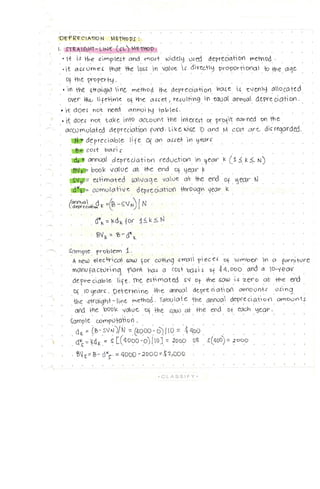 DEPRECIATION METHODS:
1. STRAIGHT-LINE (SL) METHOD
• it is the simplest and most widely used depreciation method.
• it assumes that the loss in value is directly proportional to the age
of the property.
• in the straight line method the depreciation base is evenly allocated
over the lifetime of the asset, resulting in equal annual depreciation.
• it does not need annuity tables.
• it does not take into account the interest or profit earned on the
accumulated depreciation fund. Likewise O and M cost are disregarded.
N = depreciable life of an asset in years
B = cost basis
dk = annual depreciation reduction in year k (1 ≤ k ≤ N)
BVk = book value at the end of year k
SVN = estimated salvage value at the end of year N
d*k = cumulative depreciation through year k
(annual depreciation) dk = (B - SVN) / N
d*k = kdk for 1 ≤ k ≤ N
BVk = B - d*k
Sample problem 1.
A new electrical saw for cutting small pieces of lumber in a furniture
manufacturing plant has a cost basis of $4,000 and a 10-year
depreciable life. The estimated SV of the saw is zero at the end
of 10 years. Determine the annual depreciation amounts using
the straight-line method. Tabulate the annual depreciation amounts
and the book value of the saw at the end of each year.
Sample computation.
dk = (B-SVN)/N = (4000-0)/10 = $400
d*5 = kdk = 5[(4000-0)/10] = 2000 or 5(400) = 2000
BV5 = B - d*5 = 4000 - 2000 = $2,000
• CLASSIFY •